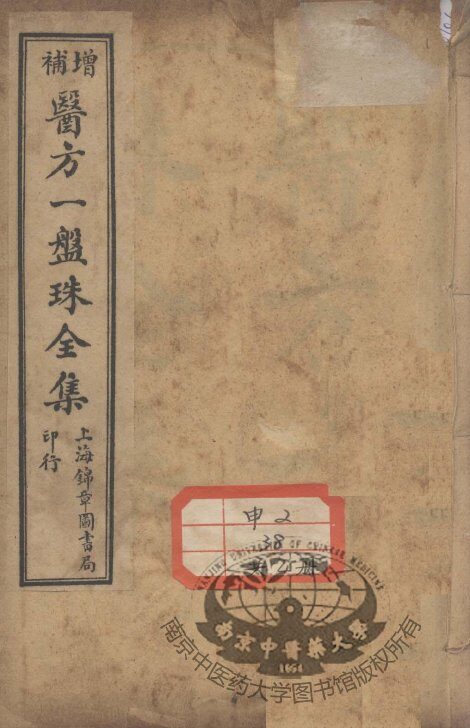 增補
醫方一盤珠全集
上海錦章圖書局
印行
申2
38
共2册
NANJING UNIVERSITY OF CHINESE MEDICINE
南京中醫藥大學
1954
南京中医药大学图书馆版权所有